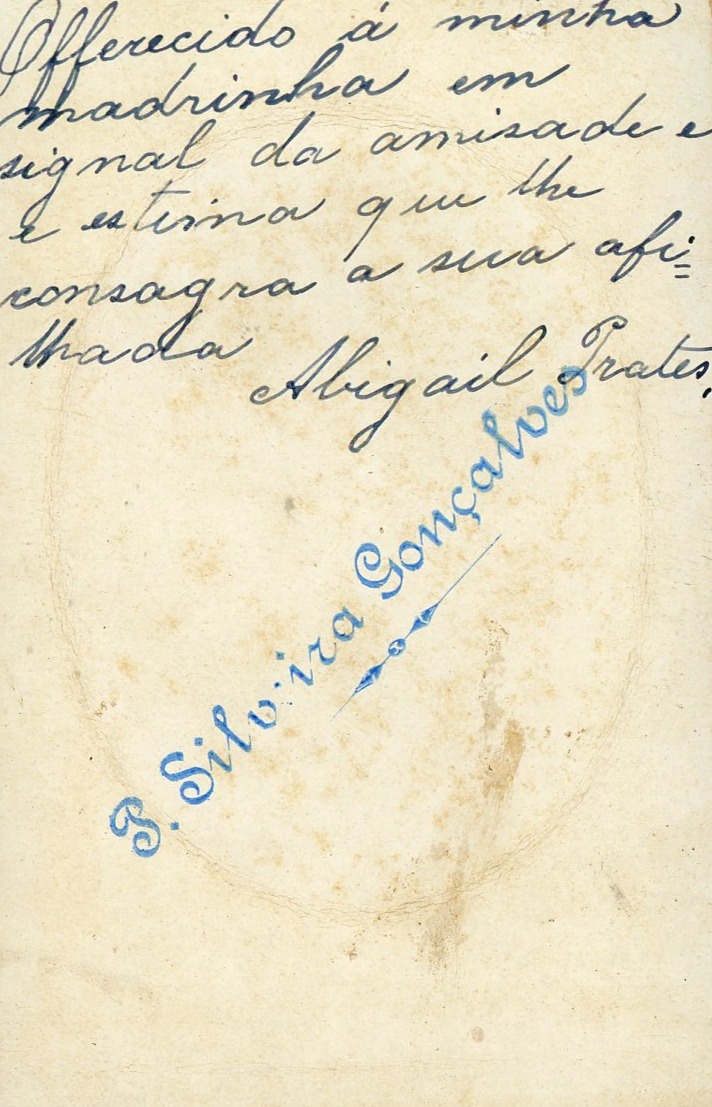 Offerecido á minha
madrinha em
signal da amisade e
e estima que lhe
consagra a sua afi=
lhada
Abigail Prates.
P. Silveira Gonçalves